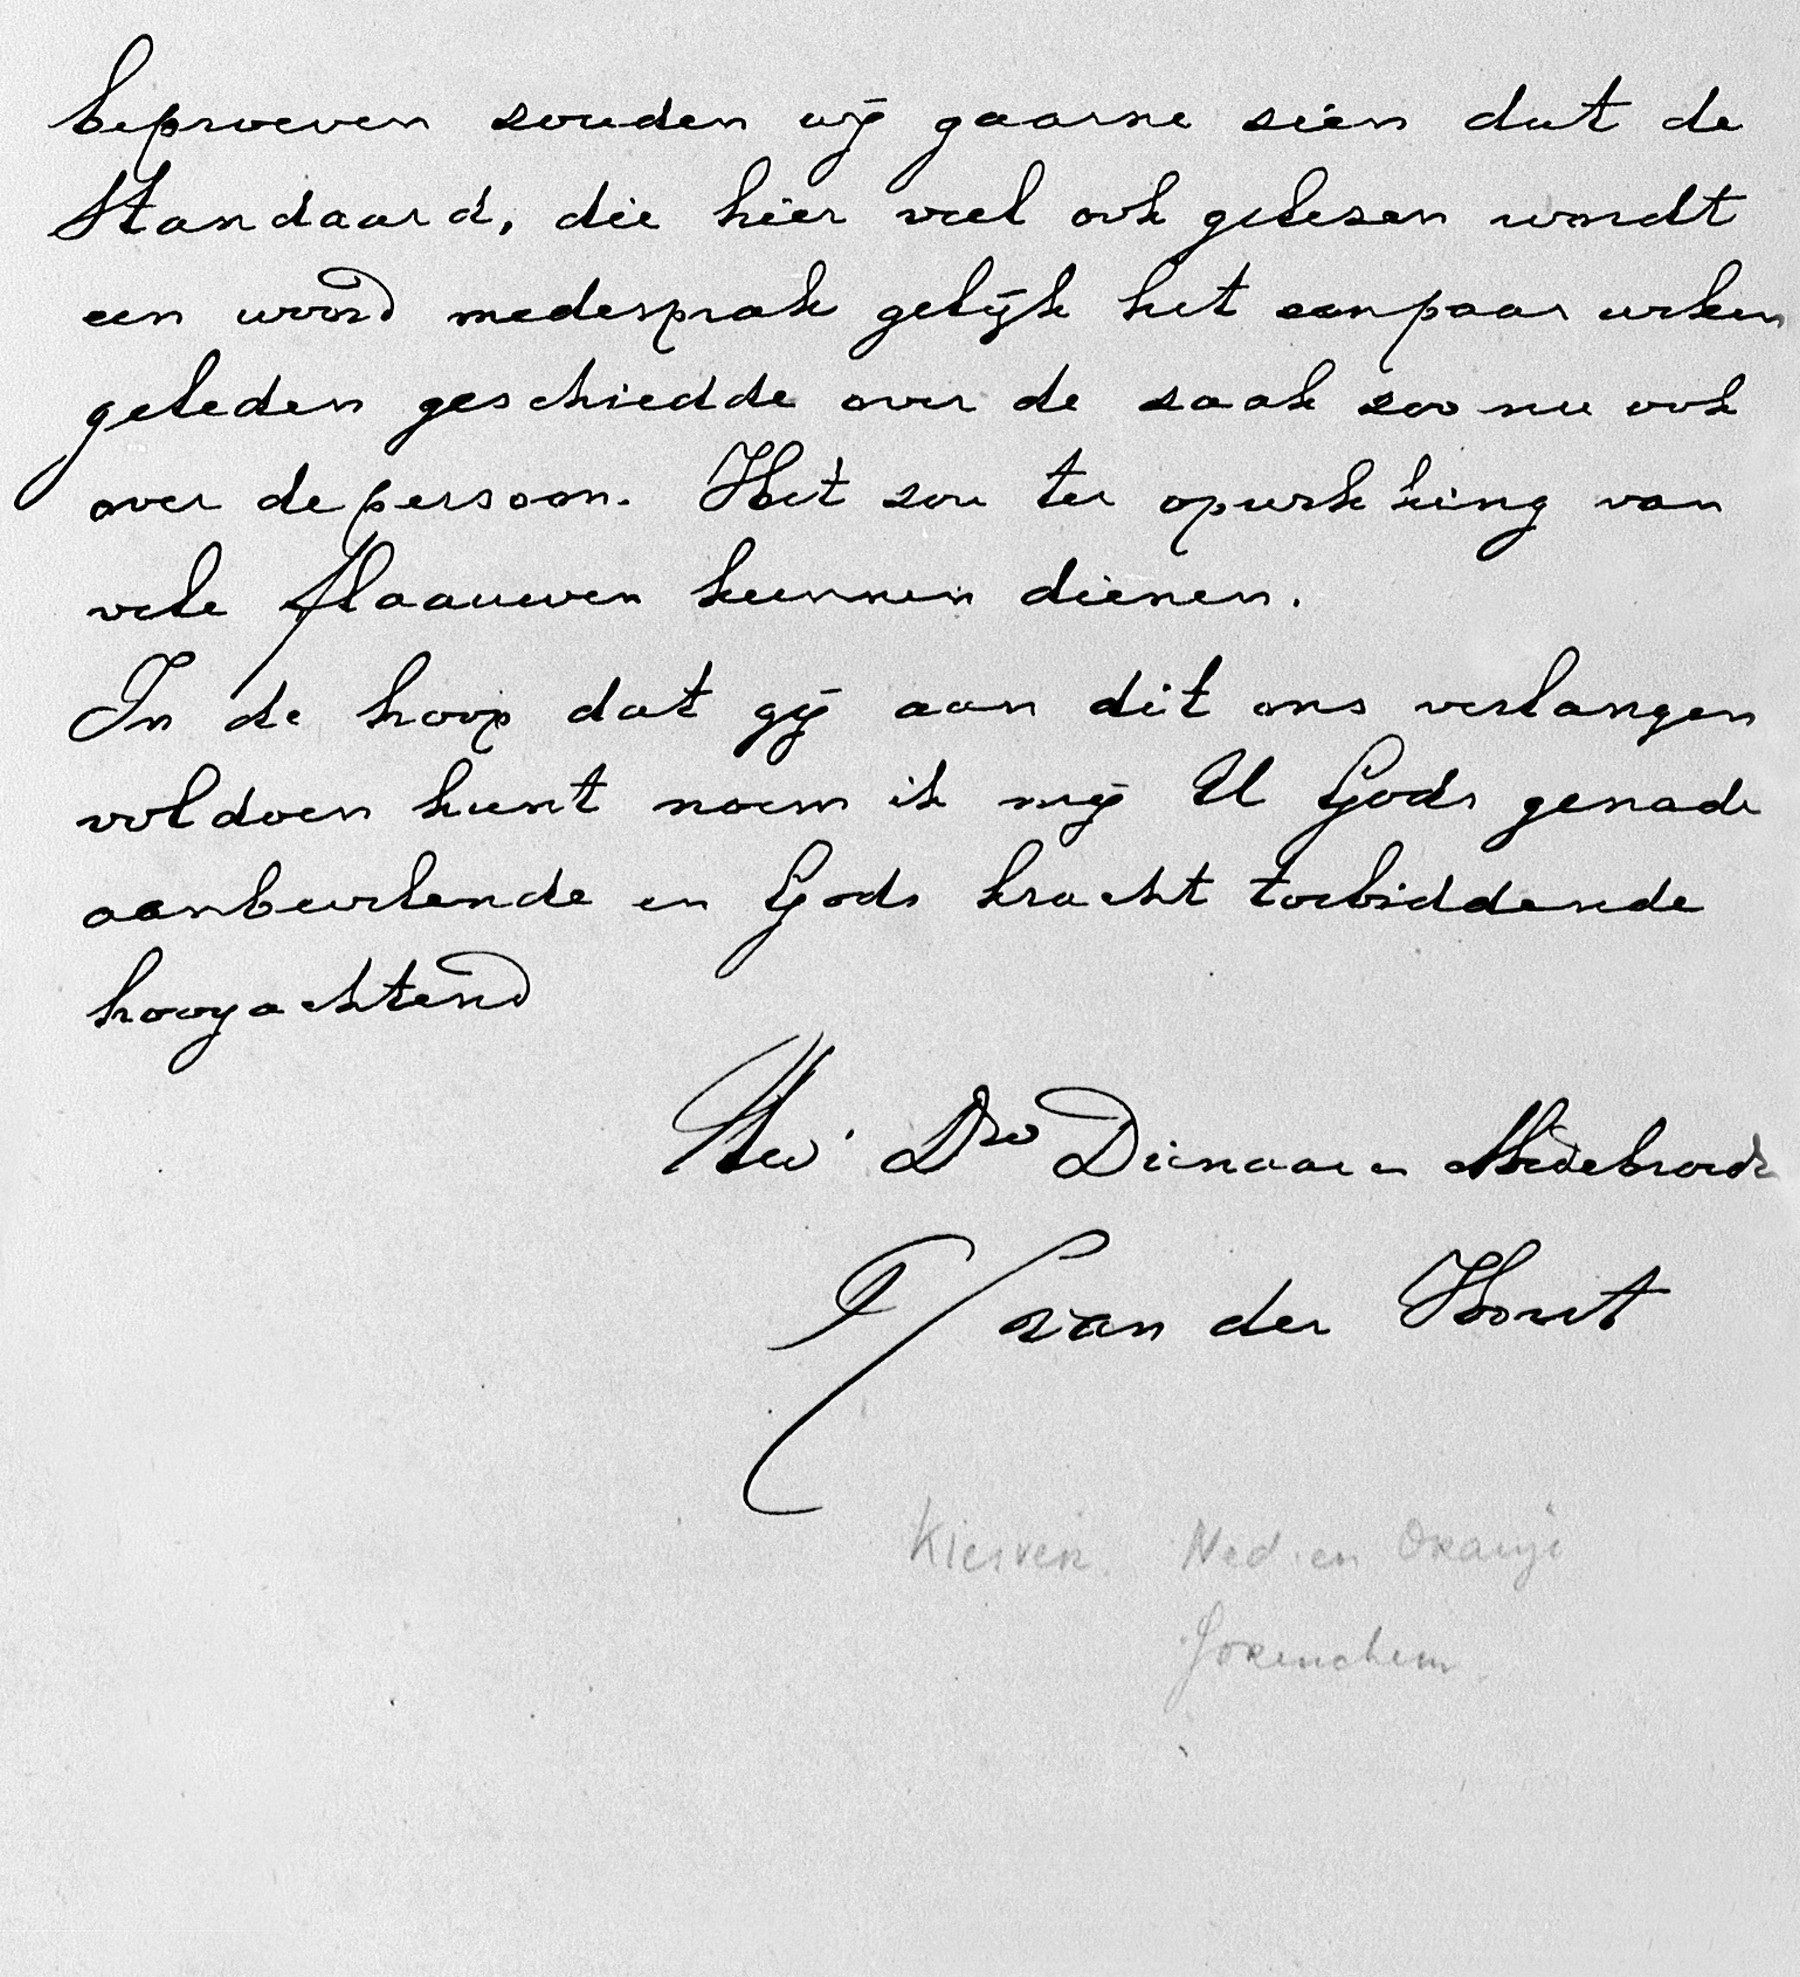 beproeven zouden wij gaarne zien dat de
Standaard, die hier veel ook gelezen wordt
een woord medesprak gelijk het eenpaar weken
geleden geschiedde over de zaak zoo nu ook
over de persoon. Het zou ter opwekking van
vele flaauwen kunnen dienen.
In de hoop dat gij aan dit ons verlangen
voldoen kunt noem ik mij U Gods genade
aanbevelende en Gods kracht toebiddende
hoogachtend
Uw Dw Dienaar en Medebroeder
van der Horst
Kiesver. Ned. en Oranje
Gorinchem.